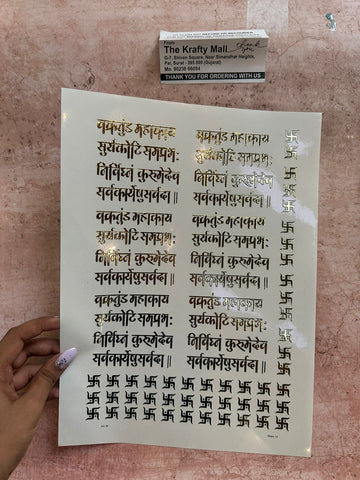 From
The Krafty Mall
Thank you
G-7, Shiven Square, Near Simandhar Heights,
Pal, Surat - 395 009 (Gujarat)
Mo. 90238 66084
THANK YOU FOR ORDERING WITH US
वक्रतुंड महाकाय
सुर्यकोटि समप्रभः
निर्विघ्नं कुरुमेदेव
सर्वकार्येषुसर्वदा॥
वक्रतुंड महाकाय
सुर्यकोटि समप्रभः
निर्विघ्नं कुरुमेदेव
सर्वकार्येषुसर्वदा॥
वक्रतुंड महाकाय
सुर्यकोटि समप्रभः
निर्विघ्नं कुरुमेदेव
सर्वकार्येषुसर्वदा॥
वक्रतुंड महाकाय
सुर्यकोटि समप्रभः
निर्विघ्नं कुरुमेदेव
सर्वकार्येषुसर्वदा॥
वक्रतुंड महाकाय
सुर्यकोटि समप्रभः
निर्विघ्नं कुरुमेदेव
सर्वकार्येषुसर्वदा॥
वक्रतुंड महाकाय
सुर्यकोटि समप्रभः
निर्विघ्नं कुरुमेदेव
सर्वकार्येषुसर्वदा॥